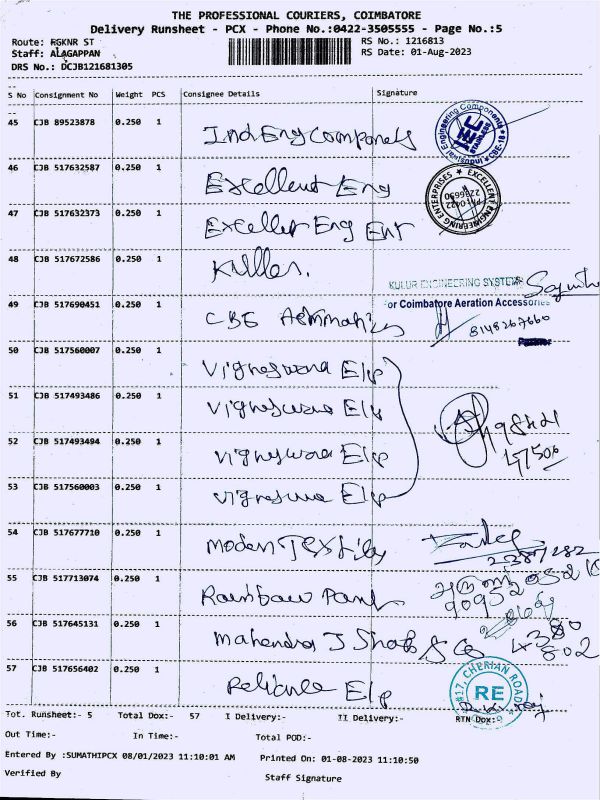 THE PROFESSIONAL COURIERS, COIMBATORE
Delivery Runsheet - PCX - Phone No.:0422-3505555 - Page No.:5
Route: RGKNR ST
RS No.: 1216813
Staff: ALAGAPPAN
RS Date: 01-Aug-2023
DRS No.: DCJB121681305
S No Consignment No Weight PCS Consignee Details Signature
45 CJB 89523878 0.250 1 Ind Eng Componets
Engineering Components
46 CJB 517632587 0.250 1 Excellent Eng
EXCELLENT ENGINEERING ENTERPRISES
47 CJB 517632373 0.250 1 Excellet Eng Ent
48 CJB 517672586 0.250 1 Kuller.
KULUR ENGINEERING SYSTEMS
49 CJB 517690451 0.250 1 CBE
For Coimbatore Aeration Accessories
8148267660
50 CJB 517560007 0.250 1 Vigneswara E/p
51 CJB 517493486 0.250 1 Vigneswara E/p
52 CJB 517493494 0.250 1 Vigneswara E/p
53 CJB 517560003 0.250 1 Vigneswa E/p
54 CJB 517677710 0.250 1 Modern Textiles
55 CJB 517713074 0.250 1 Rainbow
56 CJB 517645131 0.250 1 Mahendra J Shah & Co
57 CJB 517656402 0.250 1 Reliance E/p
#17, CHERIAN ROAD
RE
Tot. Runsheet:- 5 Total Dox:- 57 I Delivery:- II Delivery:- RTN Dox:-
Out Time:- In Time:- Total POD:-
Entered By :SUMATHIPCX 08/01/2023 11:10:01 AM Printed On: 01-08-2023 11:10:50
Verified By Staff Signature